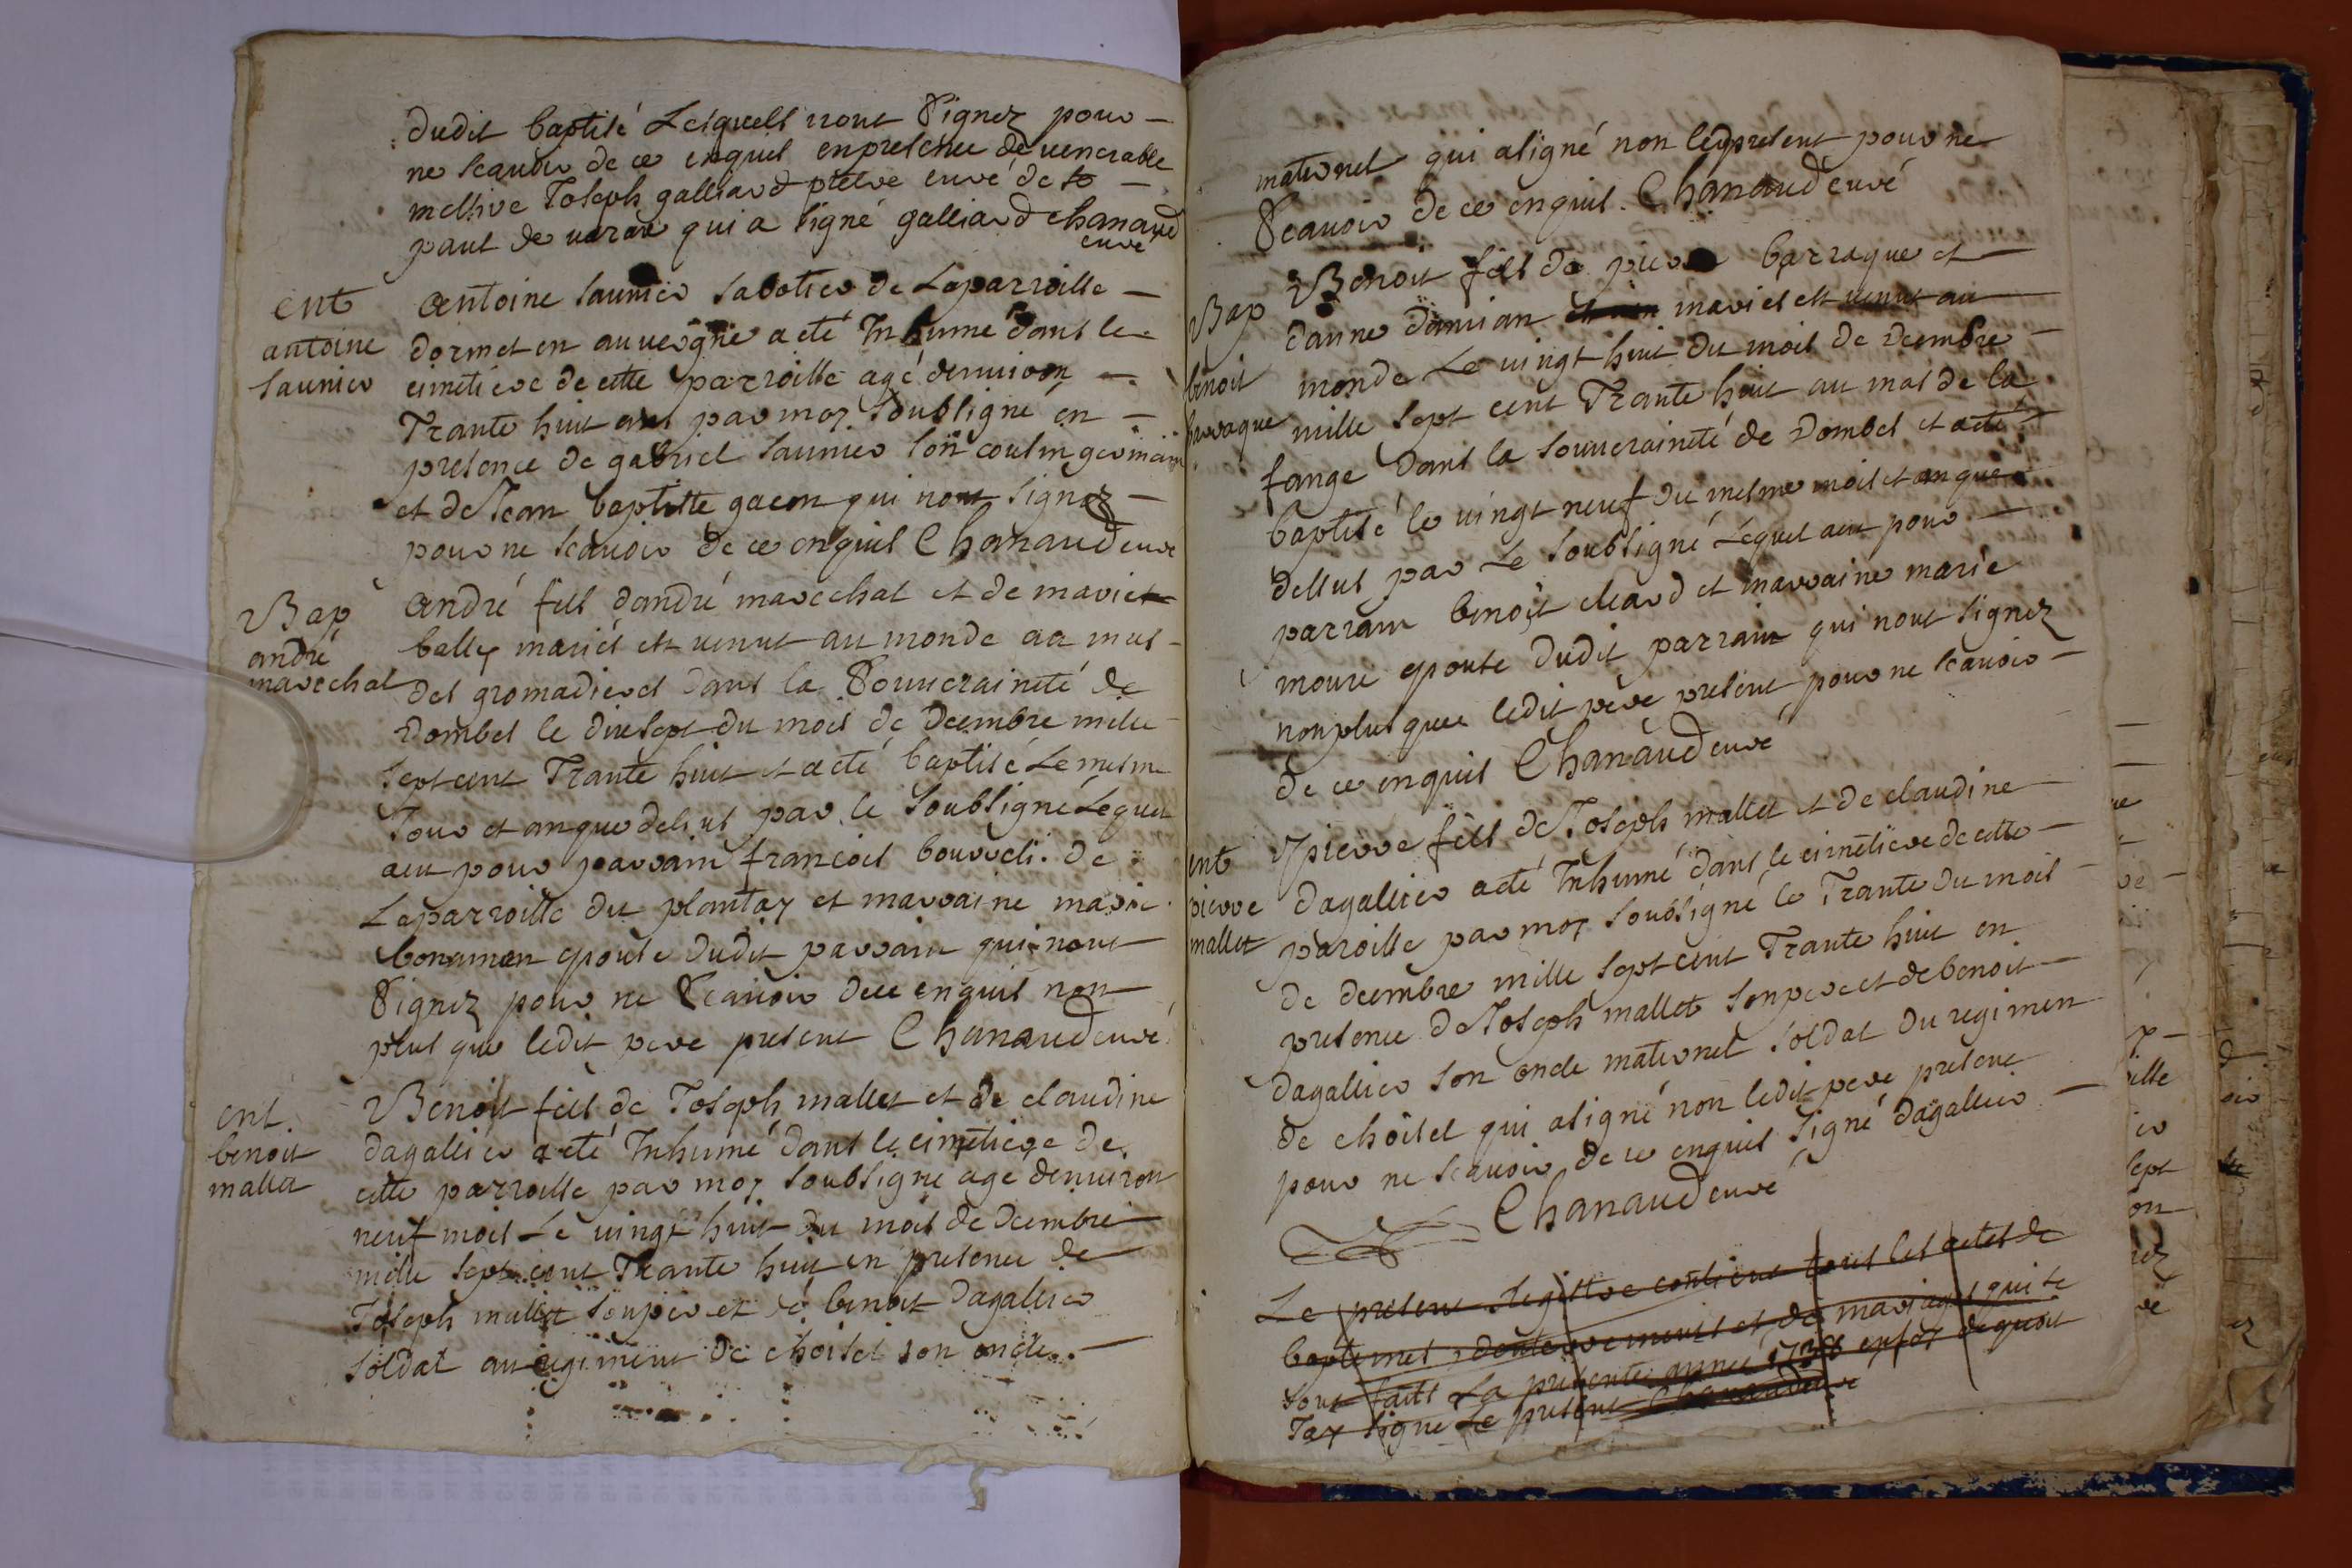 dudit baptisé Lesquels nont Signez pour
ne scavoir de ce enquis enpresence de venerable
messire Joseph galliard pretre curé de st
paul de varax qui a signé galliard Chanaud
curé
ent
antoine
saunier
antoine saunier sabotier de Laparroisse
dormet en auvergne a eté Inhumé dans le
cimetiere de cette parroisse agé denviron
Trante huit ans par moy soubsigné en
presence de gabriel saunier son cousin germain
et de Jean baptiste gacon qui nont signez
pour ne scavoir de ce enquis Chanaud curé
Bap
andré
marechal
andré fils dandré marechal et de marie
bally mariés est venut au monde au mas
des gromadieres dans la Souveraineté de
Dombes le dixsept du mois de decembre mille
sept cent Trante huit et aeté baptisé Le mesme
Jour et an que dessus par le soubsigné Lequel
aeu pour parrain francois bourdeli. de
Laparroisse du plantay et marraine marie
bonaman epouse dudit parrain qui nont
Signez pour ne Scavoir dece enquis non
plus que ledit pere present Chanaud curé
ent.
benoit
mallet
Benoit fils de Joseph mallet et de claudine
dagallier aeté Inhumé dans le cimetiere de
cette parroisse par moy soubsigné age denviron
neuf mois Le vingt huit du mois de decembre
mille sept cent Trante huit en presence de
Joseph mallet son pere et de benoit dagallier
soldat au regiment de choisel son oncle
maternel qui asigné non led present pour ne
Scavoir de ce enquis. Chanaud curé
Bap
benoit
barraque
Benoit fils de pierre barraque et
danne damian mariés est venut au
monde Le vingt huit du mois de decembre
mille sept cent Trante huit au mas de la
fange dans la souveraineté de Dombes et aeté
baptisé le vingt neuf du mesme mois et an que
dessus par Le soubsigné Lequel aeu pour
parrain benoit cleard et marraine marie
moure epouse dudit parrain qui nont signez
nonplus que ledit pere present pour ne scavoir
de ce enquis Chanaud curé
ent
pierre
mallet
pierre fils de Joseph mallet et de claudine
dagallier aeté Inhumé dans le cimetiere de cette
paroisse par moy soubsigné le Trante du mois
de decembre mille sept cent Trante huit en
presence de Joseph mallet son pere et de benoit
dagallier son oncle maternel soldat du regimen
de choisel qui asigné non ledit pere present
pour ne scavoir de ce enquis signé dagallier
Chanaud curé
Le present Registre contient tous les actes de
baptemes, denterrements et de mariages qui se
sont faits La presente année 1738 enfoy dequoit
Jay signe Le present Chanaud curé